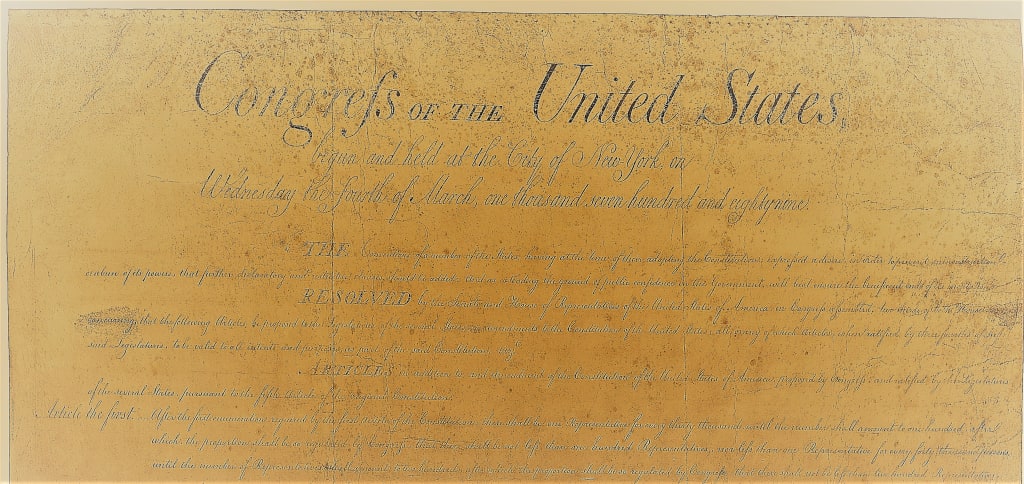 Congreſs OF THE United States,
begun and held at the City of New-York, on
Wednesday the fourth of March, one thousand seven hundred and eighty nine.
THE Conventions of a number of the States, having at the time of their adopting the Constitution, expressed a desire, in order to prevent
of its powers, that further declaratory and restrictive clauses should be added: And as extending the ground of public confidence in the Government, will best ensure the beneficent ends of its
RESOLVED by the Senate and House of Representatives of the United States of America, in Congreſs aſsembled, two thirds of both Houses
concurring, that the following Articles be proposed to the Legislatures of the several States, as amendments to the Constitution of the United States, all, or any of which Articles, when ratified by three fourths of the
said Legislatures, to be valid to all intents and purposes, as part of the said Constitution;
ARTICLES in addition to, and Amendment of the Constitution of the United States of America, proposed by Congreſs, and ratified by the Legislatures
of the several States, pursuant to the fifth Article of the Original Constitution.
Article the first. After the first enumeration required by the first Article of the Constitution, there shall be one Representative for every thirty thousand, until the number shall amount to one hundred, after
which, the proportion shall be so regulated by Congreſs, that there shall be not leſs than one hundred Representatives, nor leſs than one Representative for every forty thousand persons,
until the number of Representatives shall amount to two hundred, after which the proportion shall be so regulated by Congreſs, that there shall not be leſs than two hundred Representatives,